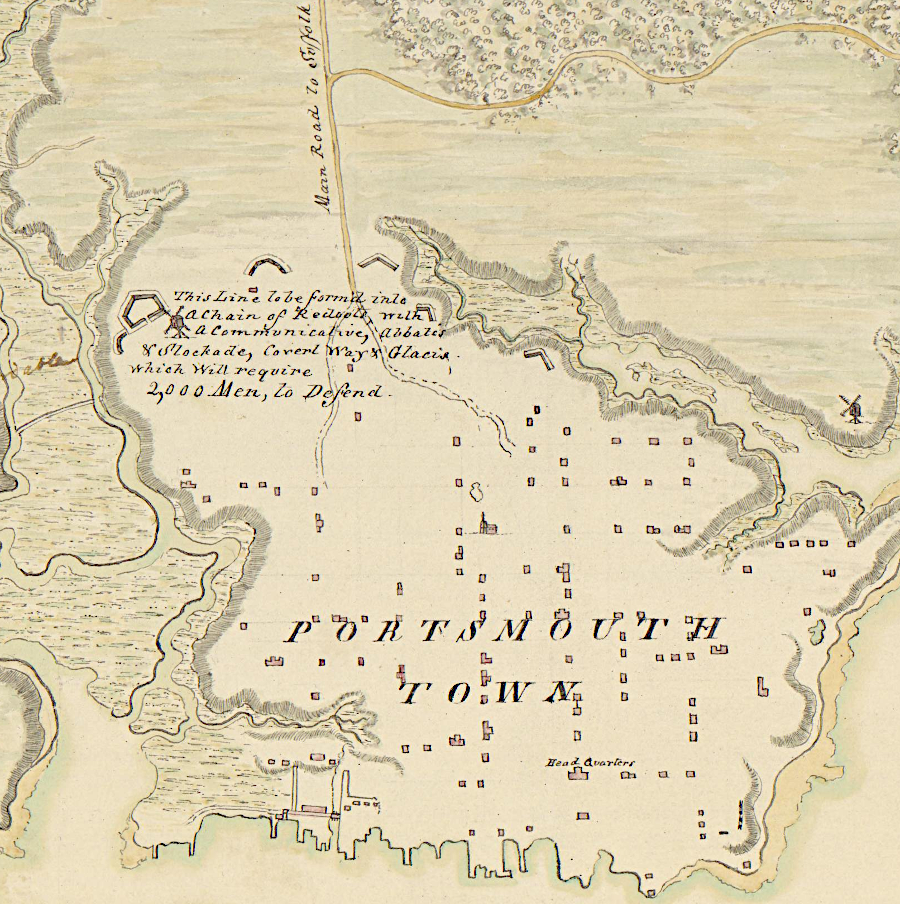 Main Road to Suffolk
This Line to be form'd into
A Chain of Redoots, with
A Communicative, Abbatis
& Stockade, Covert Way & Glacis.
which Will require
2,000 Men, to Defend.
PORTSMOUTH
TOWN
Head Quarters